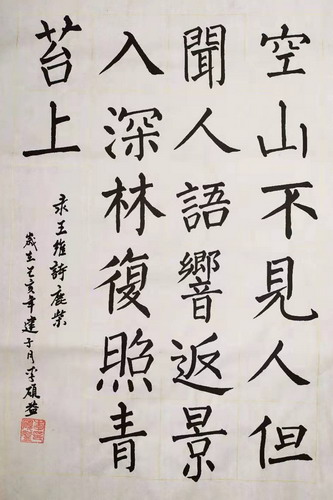 空山不見人但
聞人語響返景
入深林復照青
苔上
录王維詩鹿柴
歲在乙亥年建子月李碩